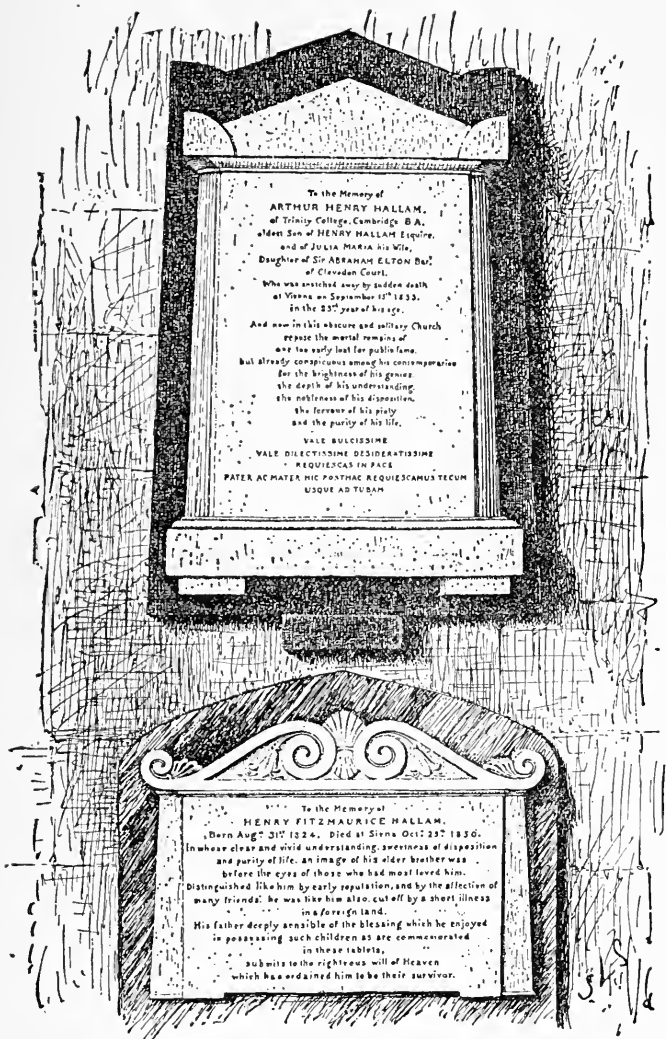 To the Memory of
ARTHUR HENRY HALLAM,
of Trinity College, Cambridge B.A.
eldest Son of HENRY HALLAM Esquire,
and of JULIA MARIA his Wife,
Daughter of Sir ABRAHAM ELTON Bart.
of Clevedon Court,
Who was snatched away by sudden death
at Vienna on September 15th 1833.
in the 23rd year of his age.
And now in this obscure and solitary Church
repose the mortal remains of
one too early lost for public fame,
but already conspicuous among his contemporaries
for the brightness of his genius,
the depth of his understanding,
the nobleness of his disposition,
the fervour of his piety
and the purity of his life.
VALE DULCISSIME
VALE DILECTISSIME DESIDERATISSIME
REQUIESCAS IN PACE
PATER AC MATER HIC POSTHAC REQUIESCAMUS TECUM
USQUE AD TUBAM
To the Memory of
HENRY FITZMAURICE HALLAM,
Born Augst 31st 1824. Died at Siena Octr 25th 1850.
In whose clear and vivid understanding, sweetness of disposition
and purity of life, an image of his elder brother was
before the eyes of those who had most loved him.
Distinguished like him by early reputation, and by the affection of
many friends, he was like him also, cut off by a short illness
in a foreign land.
His father deeply sensible of the blessing which he enjoyed
in possessing such children as are commemorated
in these tablets,
submits to the righteous will of Heaven
which has ordained him to be their survivor.